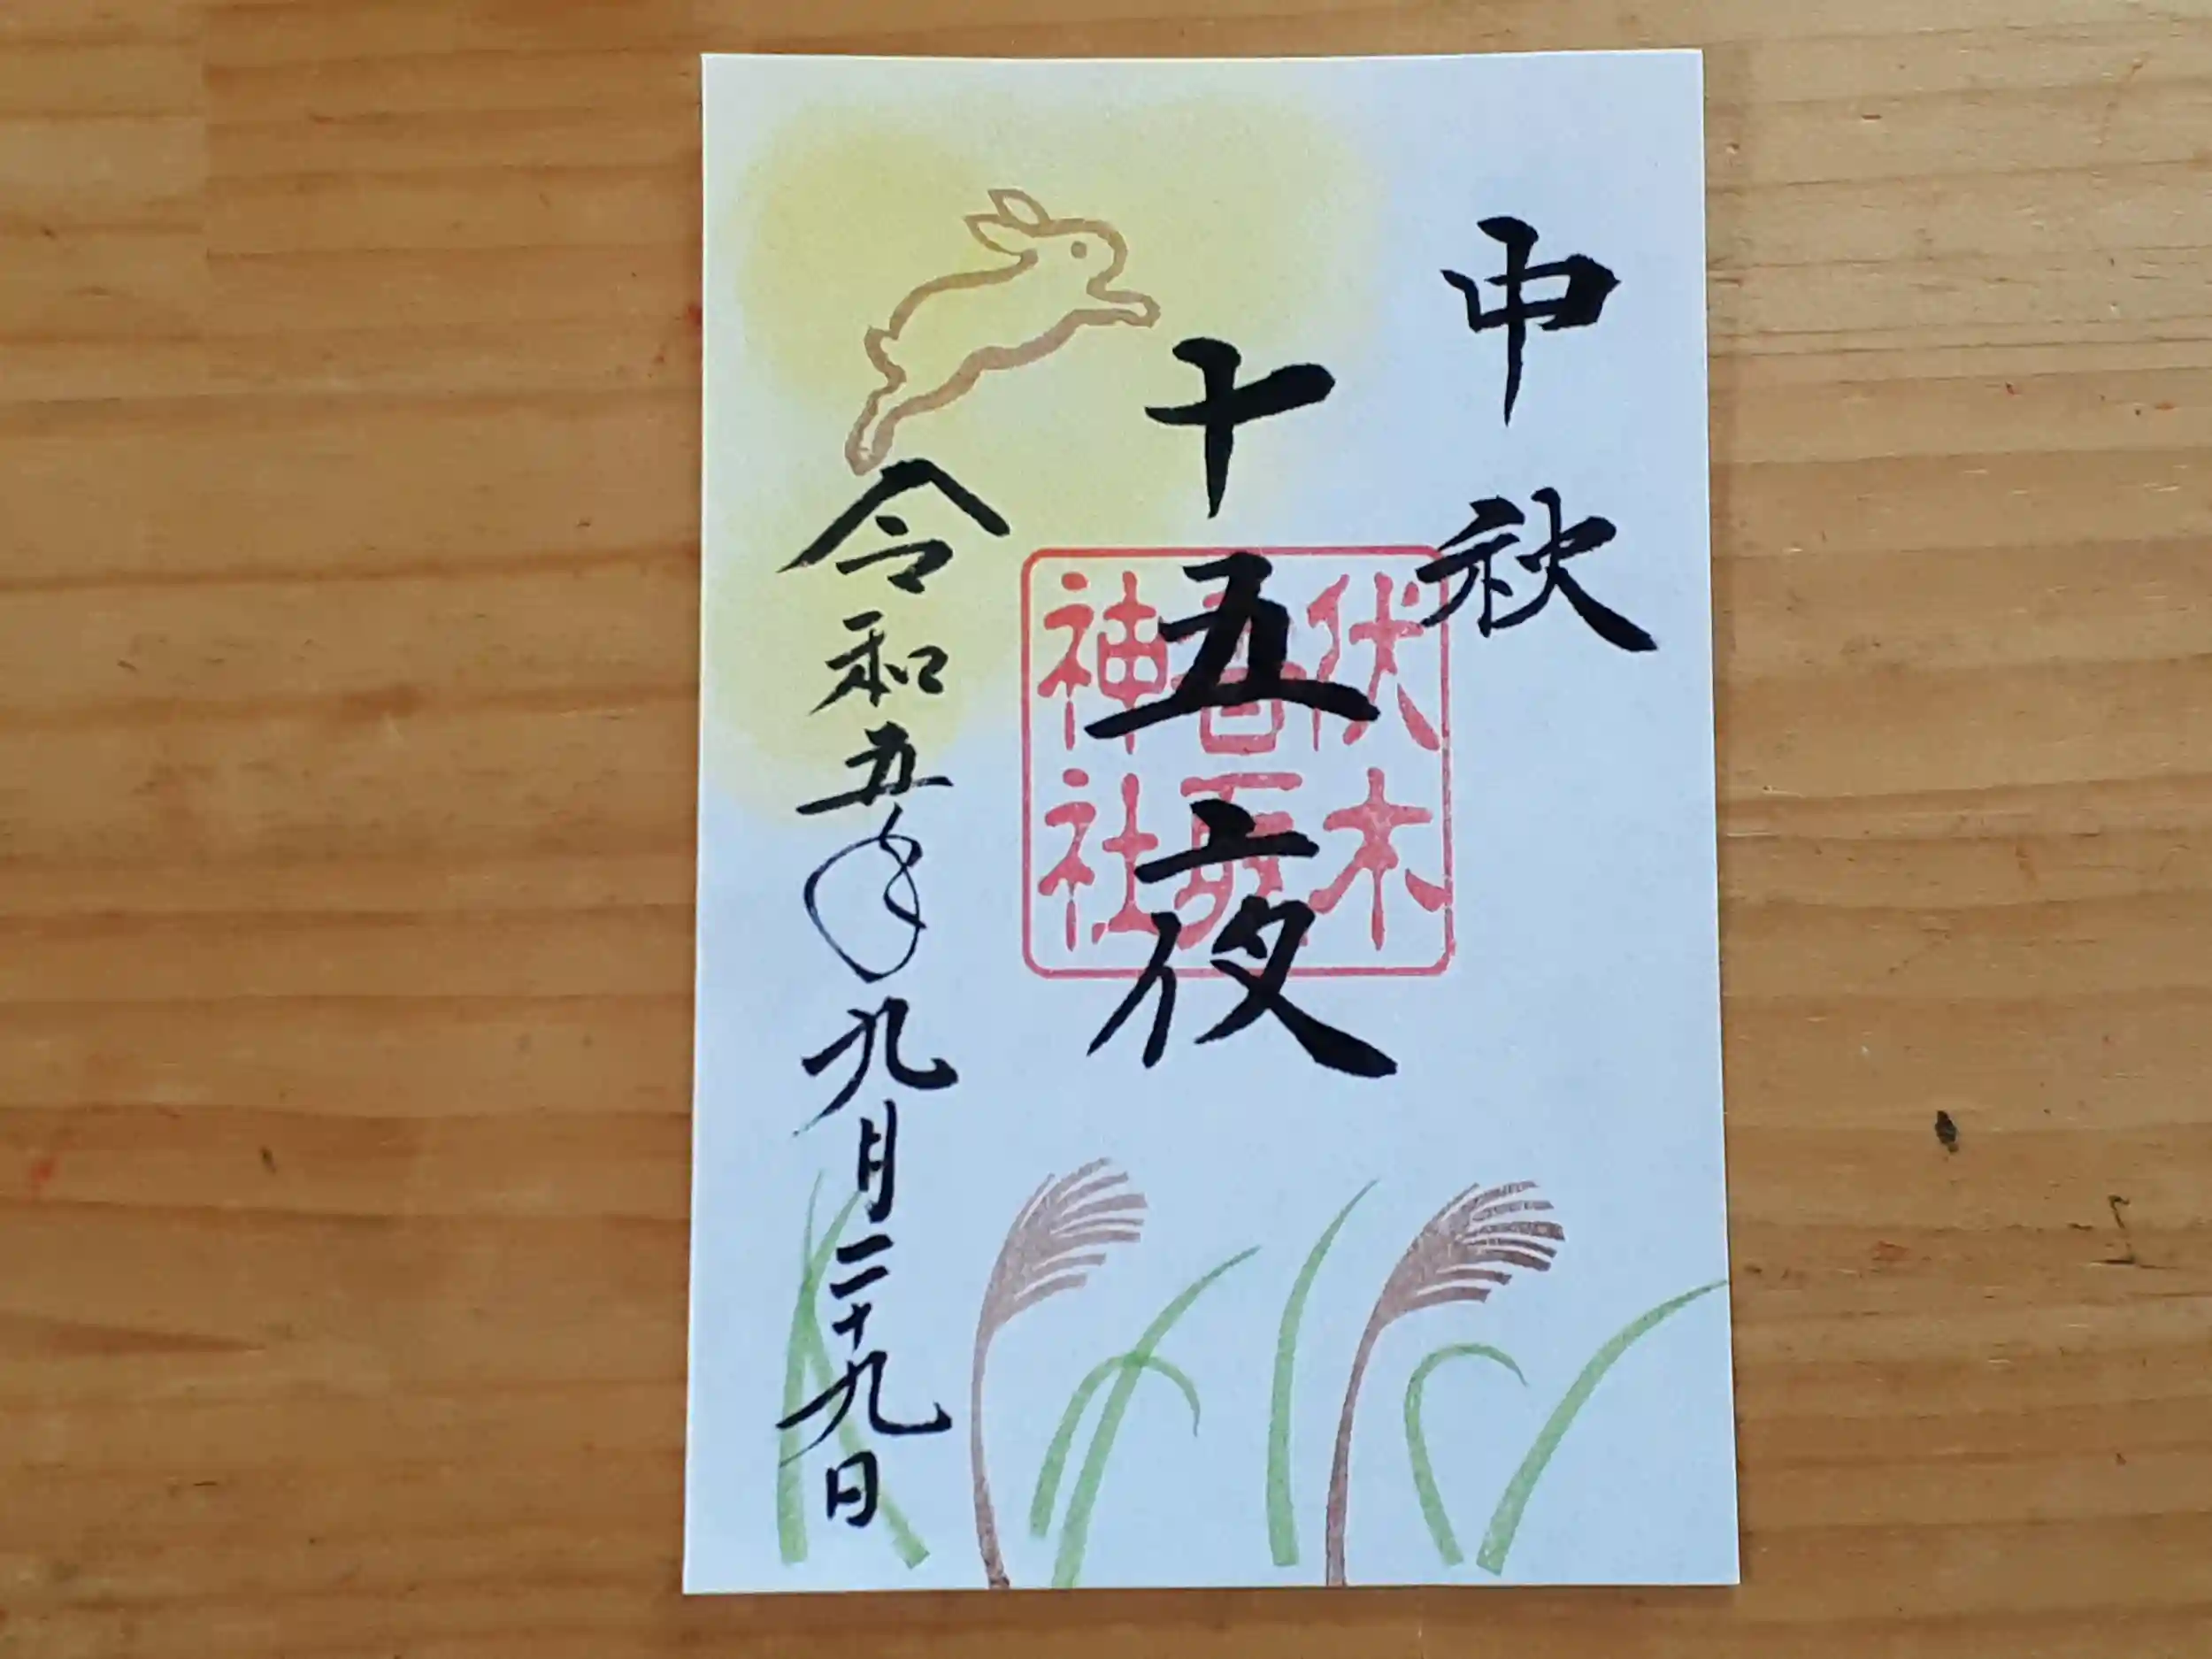 中秋
十五夜
令和五年九月二十九日
伏木
香取
神社